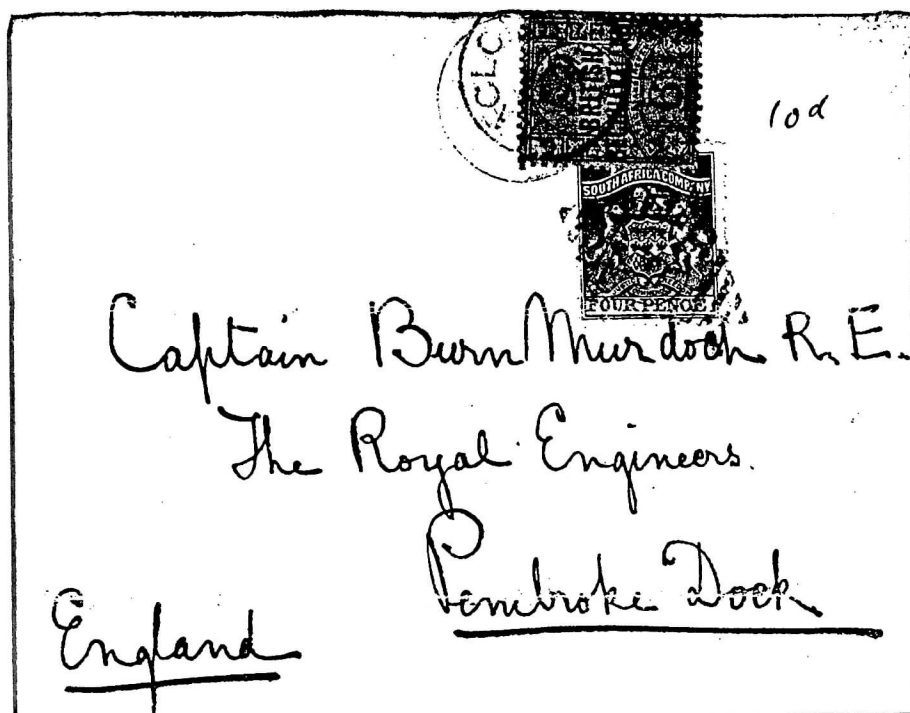 CLO
BRITISH
10d
SOUTH AFRICA COMPANY
FOUR PENCE
Captain Burn Murdoch. R. E.
The Royal Engineers.
Pembroke Dock
England